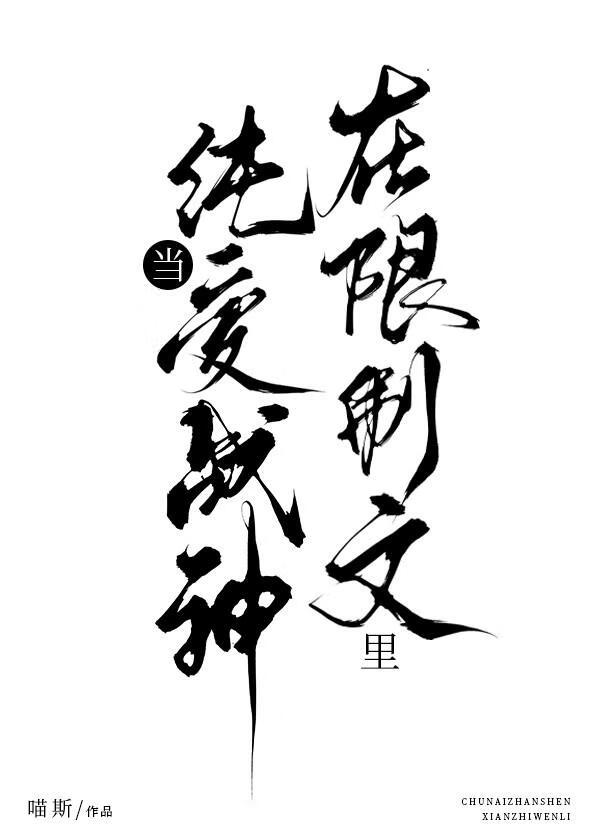 在限制文里
当纯爱战神
喵斯/作品
CHUNAIZHANSHEN
XIANZHIWENLI